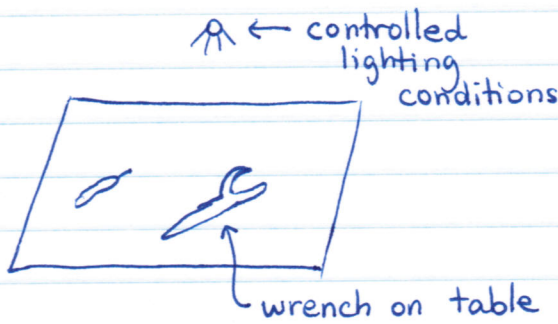 controlled
lighting
conditions
wrench on table